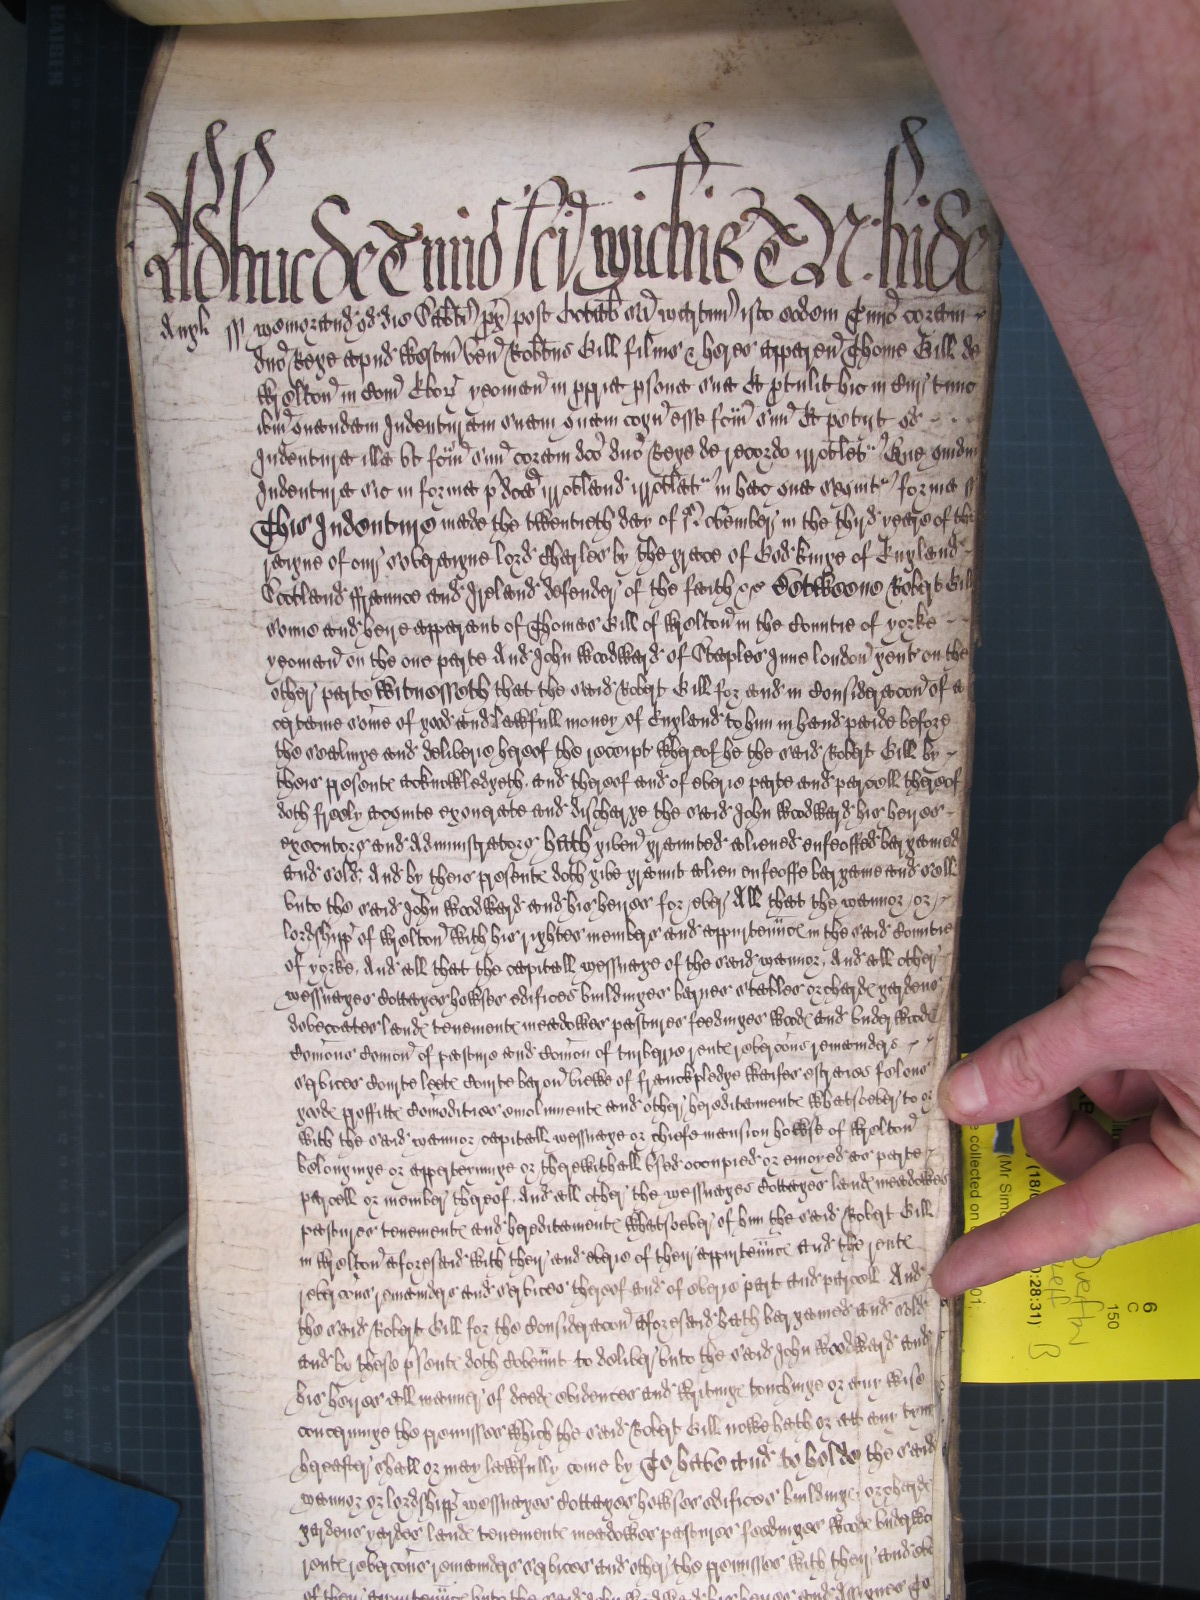 Adhuc de Tmīo scī Michis T R. hide
Angl ss Memorand qd die Sabbti px post Octab sci Martini isto eodem Tmio coram
dno Rege apud Westm ven Robtus Gill filius & heres apparen Thome Gill de
in Com Ebor yeoman in ppria psona sua Et ptulit hic in Cur tunc
ibm quandam Indenturam suam quam cogn esse fcm suu Et petiit qd
Indentura illa vt fcm suu coram dco dno Rege de recordo irrotlet Que quidm
Indentura sic in forma pdca irrotland irrotlat in hac que sequit forma ss
This Indenture made the twentieth day of in the third yeare of the
raigne of our soveraigne lord Charles by the grace of God kinge of England
Scotland ffraunce and Ireland defender of the faith &c Betweene Robert Gill
sonne and heire apparant of Thomas Gill of in the Countie of yorke
yeoman on the one parte And John Woodward of Staples Inne london gent on the
other parte Witnesseth that the said Robert Gill for and in Consideracon of a
certaine some of good and lawfull money of England to him in hand paide before
the sealinge and deliverie hereof the receipt whereof he the said Robert Gill by
theis presente acknowledgeth, and thereof and of everie parte and parcell thereof
doth freely acquite exonerate and discharge the said John Woodward his heires
executors and Administrators hath given graunted aliened enfeoffed bargained
and sold, And by theis presente doth give graunt alien enfeoffe bargaine and sell
vnto the said John Woodward and his heires for ever All that the Mannor or
lordshipp of with his rightes members and appurtenuce in the said Countie
of yorke, And all that the capitall Messuage of the said Mannor, And all other
Messuages Cottages howses edifices buildinges barnes stables orchard gardens
dovecoates lande tenemente meadowes pastures feedinges wode and vnderwode
Comons Comon of pasture and Comon of turberrie rente revercons remainders
services Courte leete Courte baron viewe of franckpledge waifes estraies felons
goode proffitte Comodities emolumente and other hereditamente whatsoever to or
with the said Mannor capitall Messuage or chiefe mansion howse of
belonginge or apperteininge or therewithall vsed occupied or enioyed as parte
parcell or member thereof, And all other the Messuages Cottages lande meadowes
pastures tenemente and hereditamente whatsoever of him the said Robert Gill
in aforesaid with their and everie of their appurtenuce And the rente
revercons remainders and services thereof and of everie part and parcell And
the said Robert Gill for the Consideracon aforesaid hath bargained and sold
and by these psente doth Covenut to deliver vnto the said John Woodward and
his heires all manner of deede evidences and writinge touchinge or any wise
concerninge the premisses which the said Robert Gill nowe hath or att any tyme
hereafter shall or may lawfully come by To have and to holde the said
Mannor or lordshipp Messuages Cottages howses edifices buildinge orcharde
gardens yardes lande tenemente meadowes pastures feedinges wode vnderwo
rente revercons remainders services and other the premisses with their and eve
of their appurtenuce vnto the said John Woodward his heires and Assignes To
6
C
150
(18/
(Mr Simo
0:28:31)
e collected on
01.